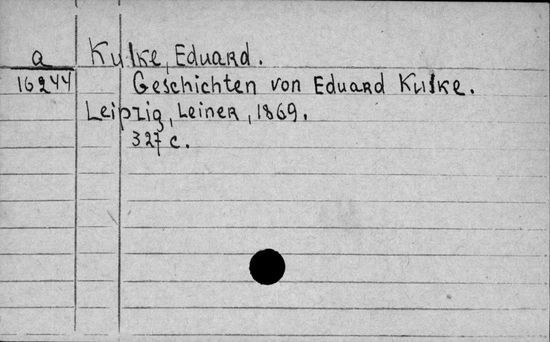 a Kulke, Eduard.
16244 Geschichten von Eduard Kulke.
Leipzig, Leiner, 1869.
327 c.